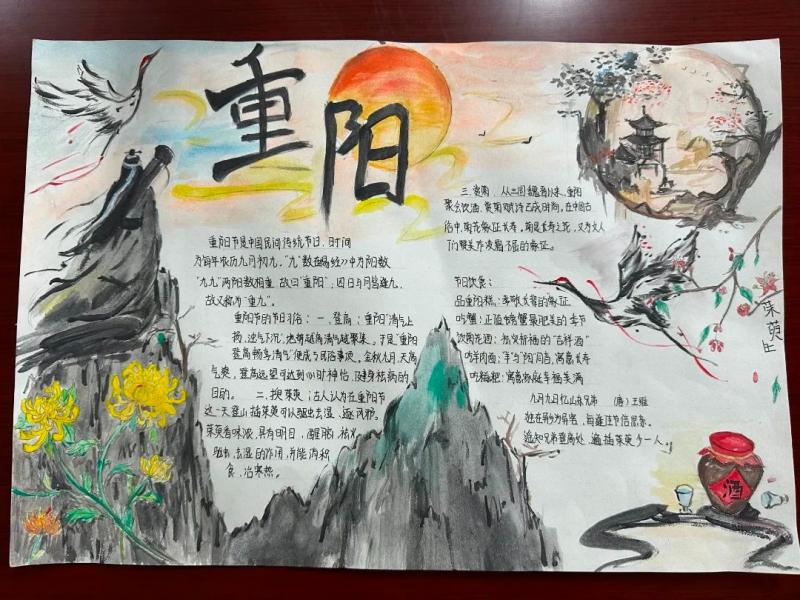 重阳
重阳节是中国民间传统节日,时间
为每年农历九月初九,"九"数在《易经》中为阳数
"九九"两阳数相重,故曰"重阳",因日与月皆逢九,
故又称为"重九"。
重阳节的节日习俗:一、登高:重阳"清气上
扬,浊气下沉"地势越高清气越聚集。于是"重阳
登高畅享清气"便成了民俗事项。金秋九月,天高
气爽,登高远望可达到心旷神怡、健身祛病的
目的。 二、插茱萸:古人认为在重阳节
这一天登山插茱萸可以驱虫去湿、逐风邪。
茱萸香味浓,具有明目,醒脑,祛火
驱虫、去湿的作用,并能消积
食,治寒热。
三、赏菊:从三国魏晋以来,重阳
聚会饮酒、赏菊赋诗已成时尚。在中国古
俗中,菊花象征长寿,菊是长寿之花,又为文人
们赞美作凌霜不屈的象征。
节日饮食:
品重阳糕:步步长高的象征
吃蟹:正值螃蟹最肥美的季节
饮菊花酒:祛灾祈福的"吉祥酒"
吃羊肉面:羊与"阳"同音,寓意长寿
吃糍粑:寓意家庭幸福美满
九月九日忆山东兄弟 (唐)王维
独在异乡为异客,每逢佳节倍思亲。
遥知兄弟登高处,遍插茱萸少一人。
茱萸
酒